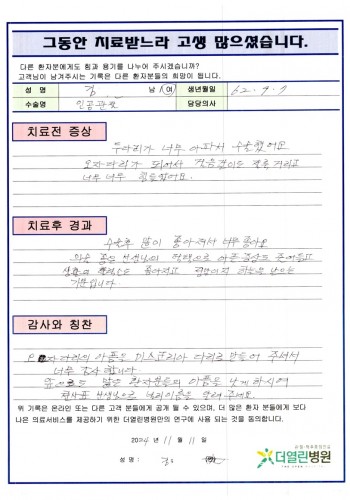 그동안 치료받느라 고생 많으셨습니다.
다른 환자분에게도 힘과 용기를 나누어 주시겠습니까?
고객님이 남겨주시는 기록은 다른 환자분들의 희망이 됩니다.
성 명 김 남/여 생년월일 62. 9. 7
수술명 인공관절 담당의사
치료전 증상
두다리가 너무 아파서 수술했어요
오자다리가 되어서 걸음걸이도
너무 너무 힘들었어요.
치료후 경과
수술후 많이 좋아져서 너무 좋아요
좋은 선생님의 덕택으로 아픈 증상도
좋아지고
기분입니다
감사와 칭찬
O자다리의 아픔을 미스코리아 다리로 만들어 주셔서
너무 감사합니다.
앞으로도 많은 환자분들의 아픔을 낫게 하시어
선생님으로
위 기록은 온라인 또는 다른 고객 분들에게 공개 될 수 있으며, 더 많은 환자 분들에게 보다
나은 의료서비스를 제공하기 위한 더열린병원만의 연구에 사용 되는 것을 동의합니다.
2024년 11월 11일
성 명 : 김
더열린병원